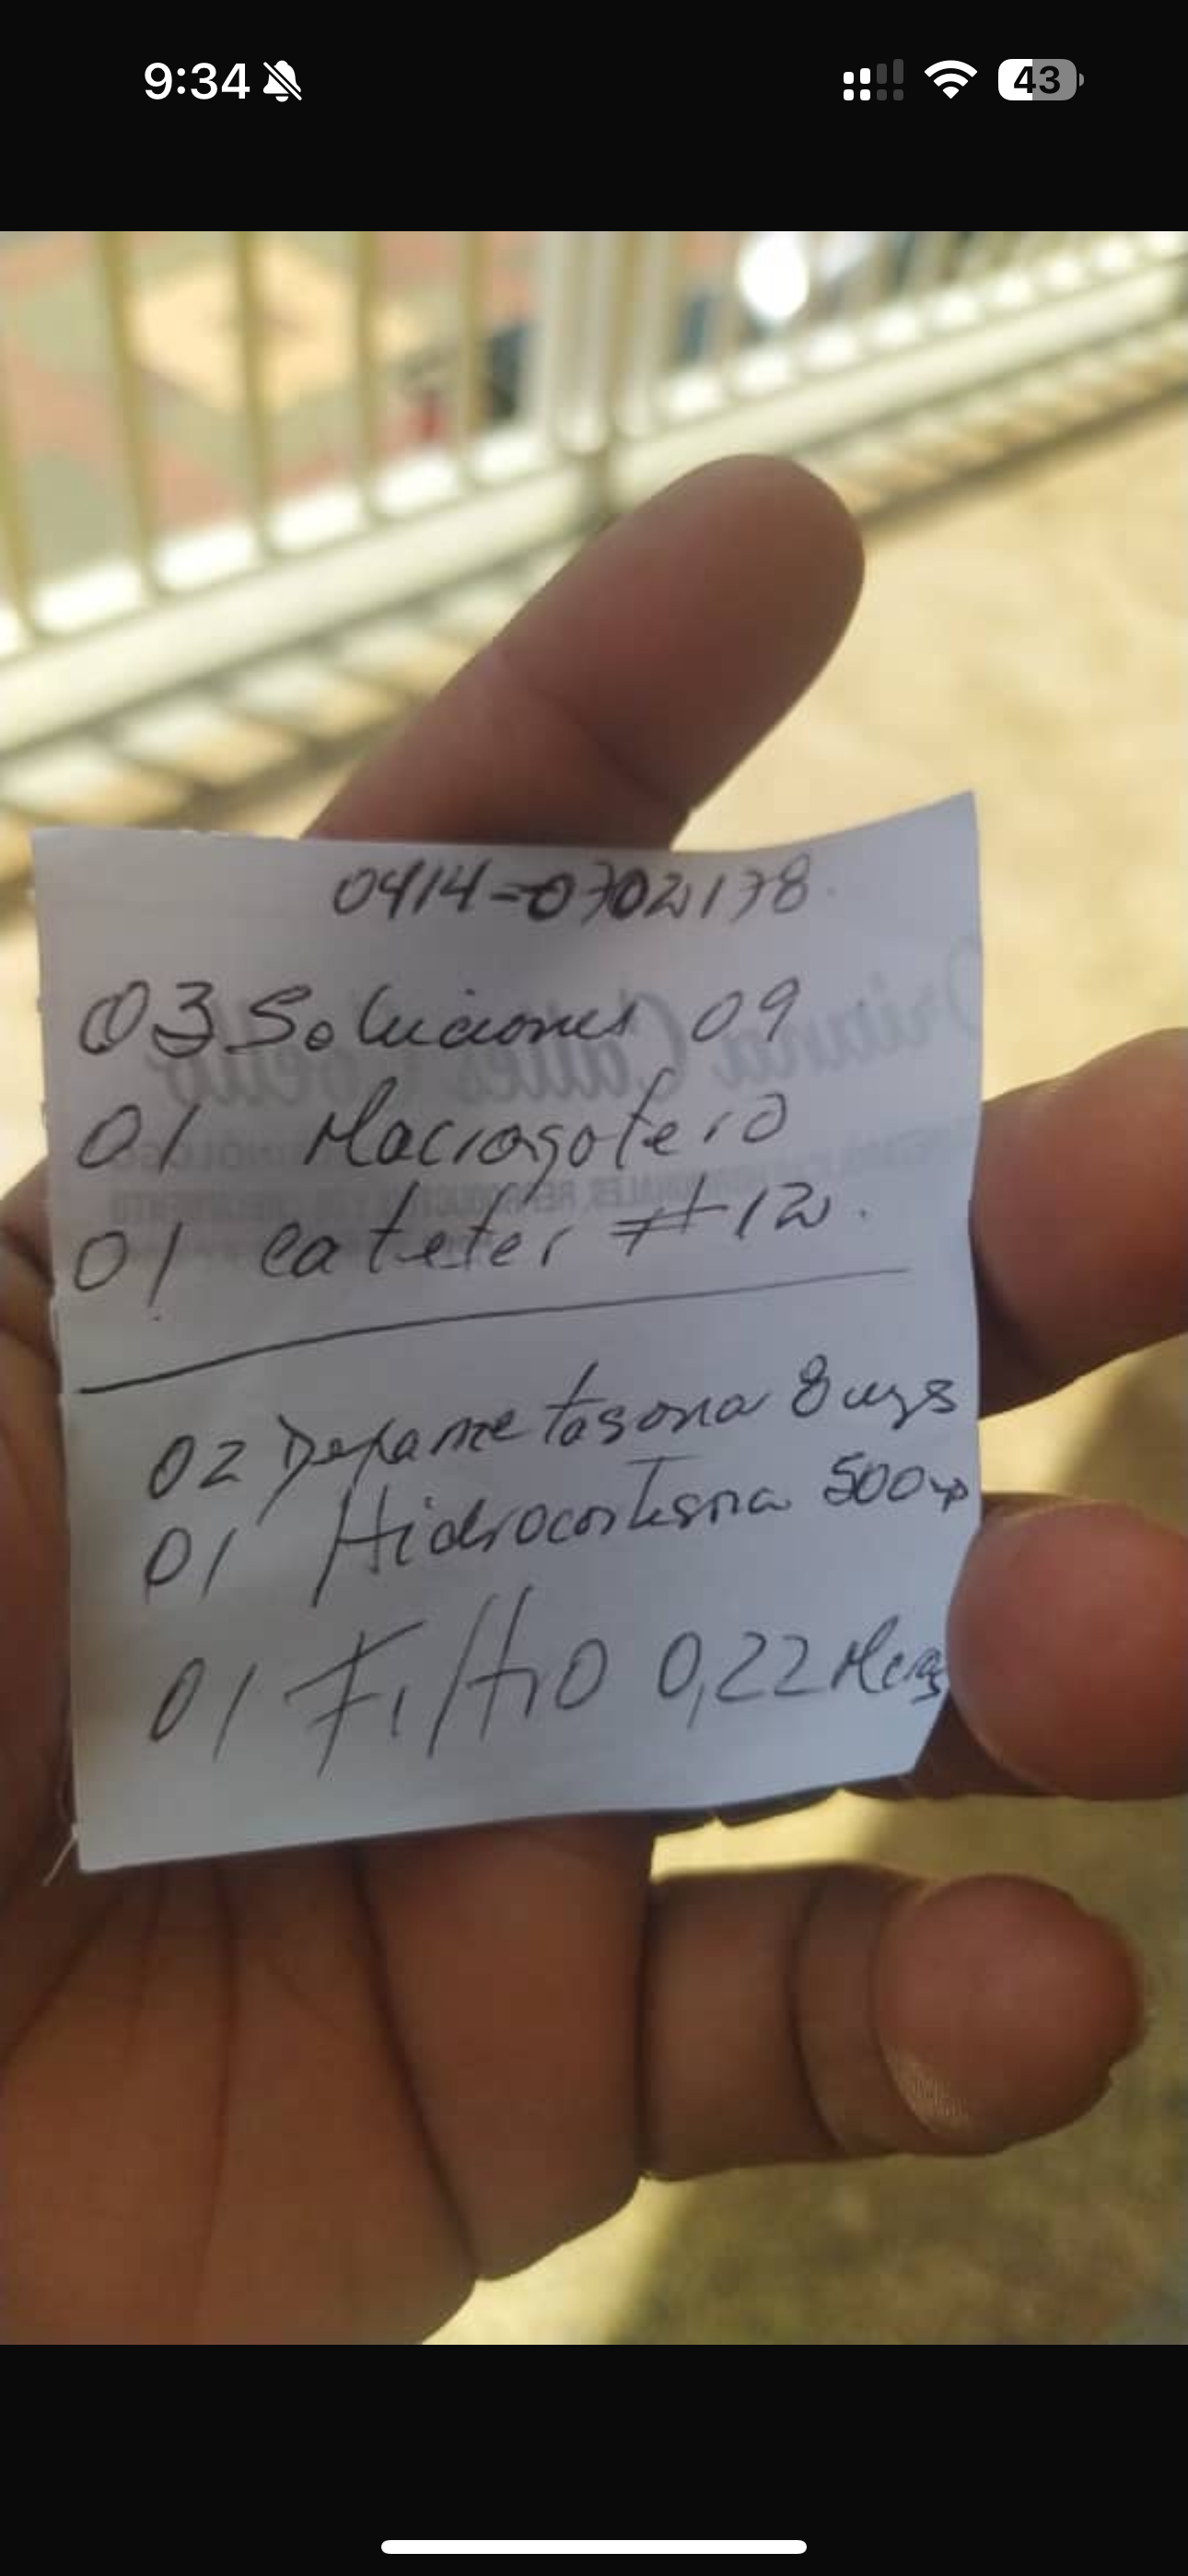 9:34
43
0414-0702178
03 Soluciones 09
01 Macrogotero
01 Cateter #12.
02 Dexametasona 8 mgs
01 Hidrocortisona 500
01 Filtro 0,22